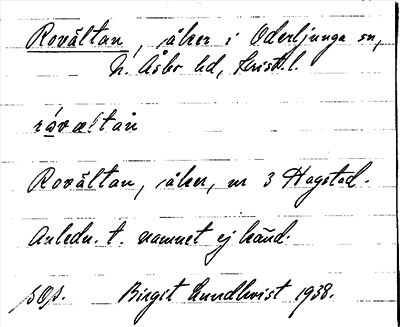 Rovältan, åker i Oderljunga sn,
N. Åsbo hd, Krist. l.
råvæltån
Rovältan, åker, nr 3 Hagstad.
Anledn. t. namnet ej känd.
Birgit Lundkvist 1938.